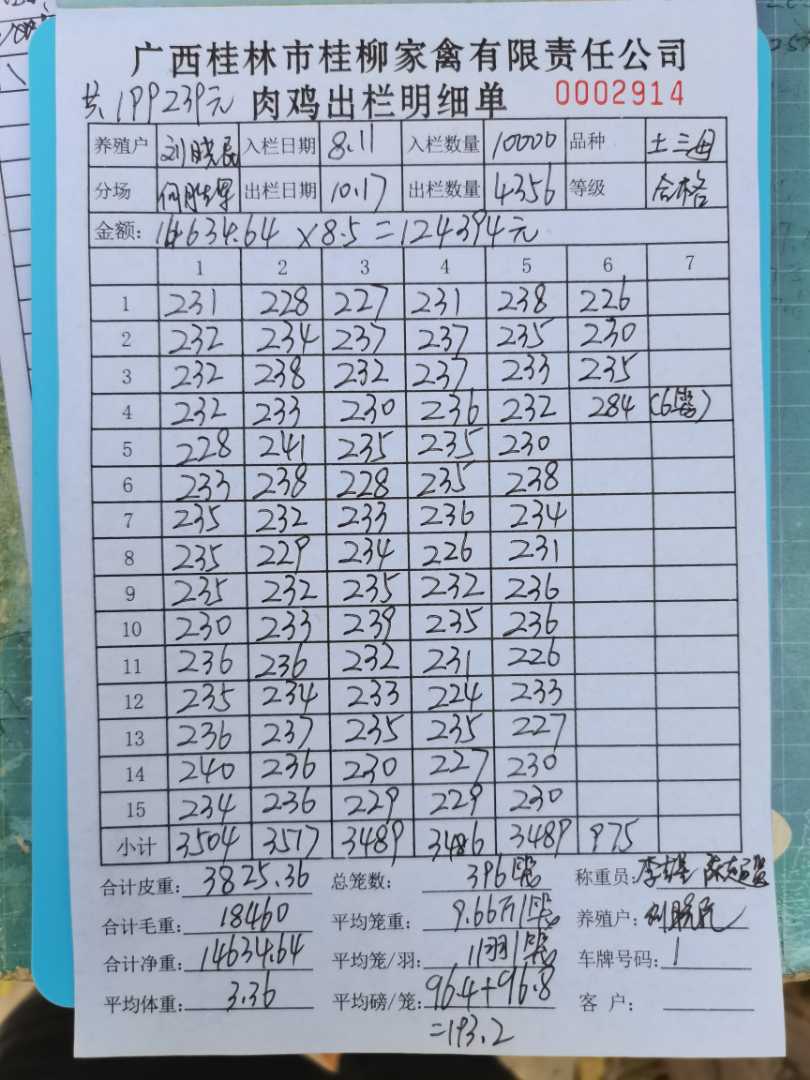 广西桂林市桂柳家禽有限责任公司
共199239元 肉鸡出栏明细单 0002914
养殖户 刘晓民 入栏日期 8.11 入栏数量 10000 品种 土三母
分场 出栏日期 10.17 出栏数量 4356 等级 合格
金额: 14634.64 ×8.5=124394元
1 2 3 4 5 6 7
1 231 228 227 231 238 226
2 232 234 237 237 235 230
3 232 238 232 237 233 235
4 232 233 230 236 232 284 (6笼)
5 228 241 235 235 230
6 233 238 228 235 238
7 235 232 233 236 234
8 235 229 234 226 231
9 235 232 235 232 236
10 230 233 239 235 236
11 236 236 232 231 226
12 235 234 233 224 233
13 236 237 235 235 227
14 240 236 230 227 230
15 234 236 229 229 230
小计 3504 3517 3489 3486 3489 975
合计皮重: 3825.36 总笼数: 396笼 称重员:
合计毛重: 18460 平均笼重: 9.66斤/笼 养殖户: 刘晓民
合计净重: 14634.64 平均笼/羽: 11羽/笼 车牌号码: 1
平均体重: 3.36 平均磅/笼: 96.4+96.8 客户:
=193.2